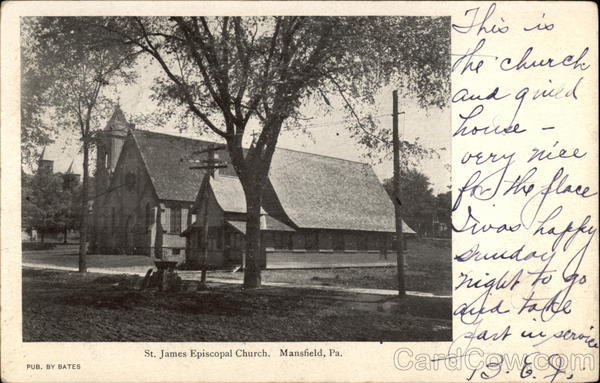 This is
the church
and guild
house –
very nice
for the place
I was happy
Sunday
night to go
and take
part in service
St. James Episcopal Church. Mansfield, Pa.
PUB. BY BATES
CardCow.com